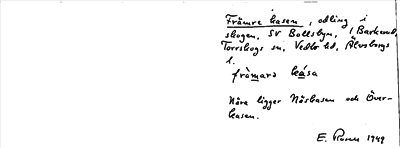 Främre kasen, odling i
skogen, SV Bollsbyn, i Backerud,
Torrskogs sn, Vedbo hd, Älvsborgs
l.
främarə kása
Nära ligger Näskasen och Över-
kasen.
E. Rosen 1949